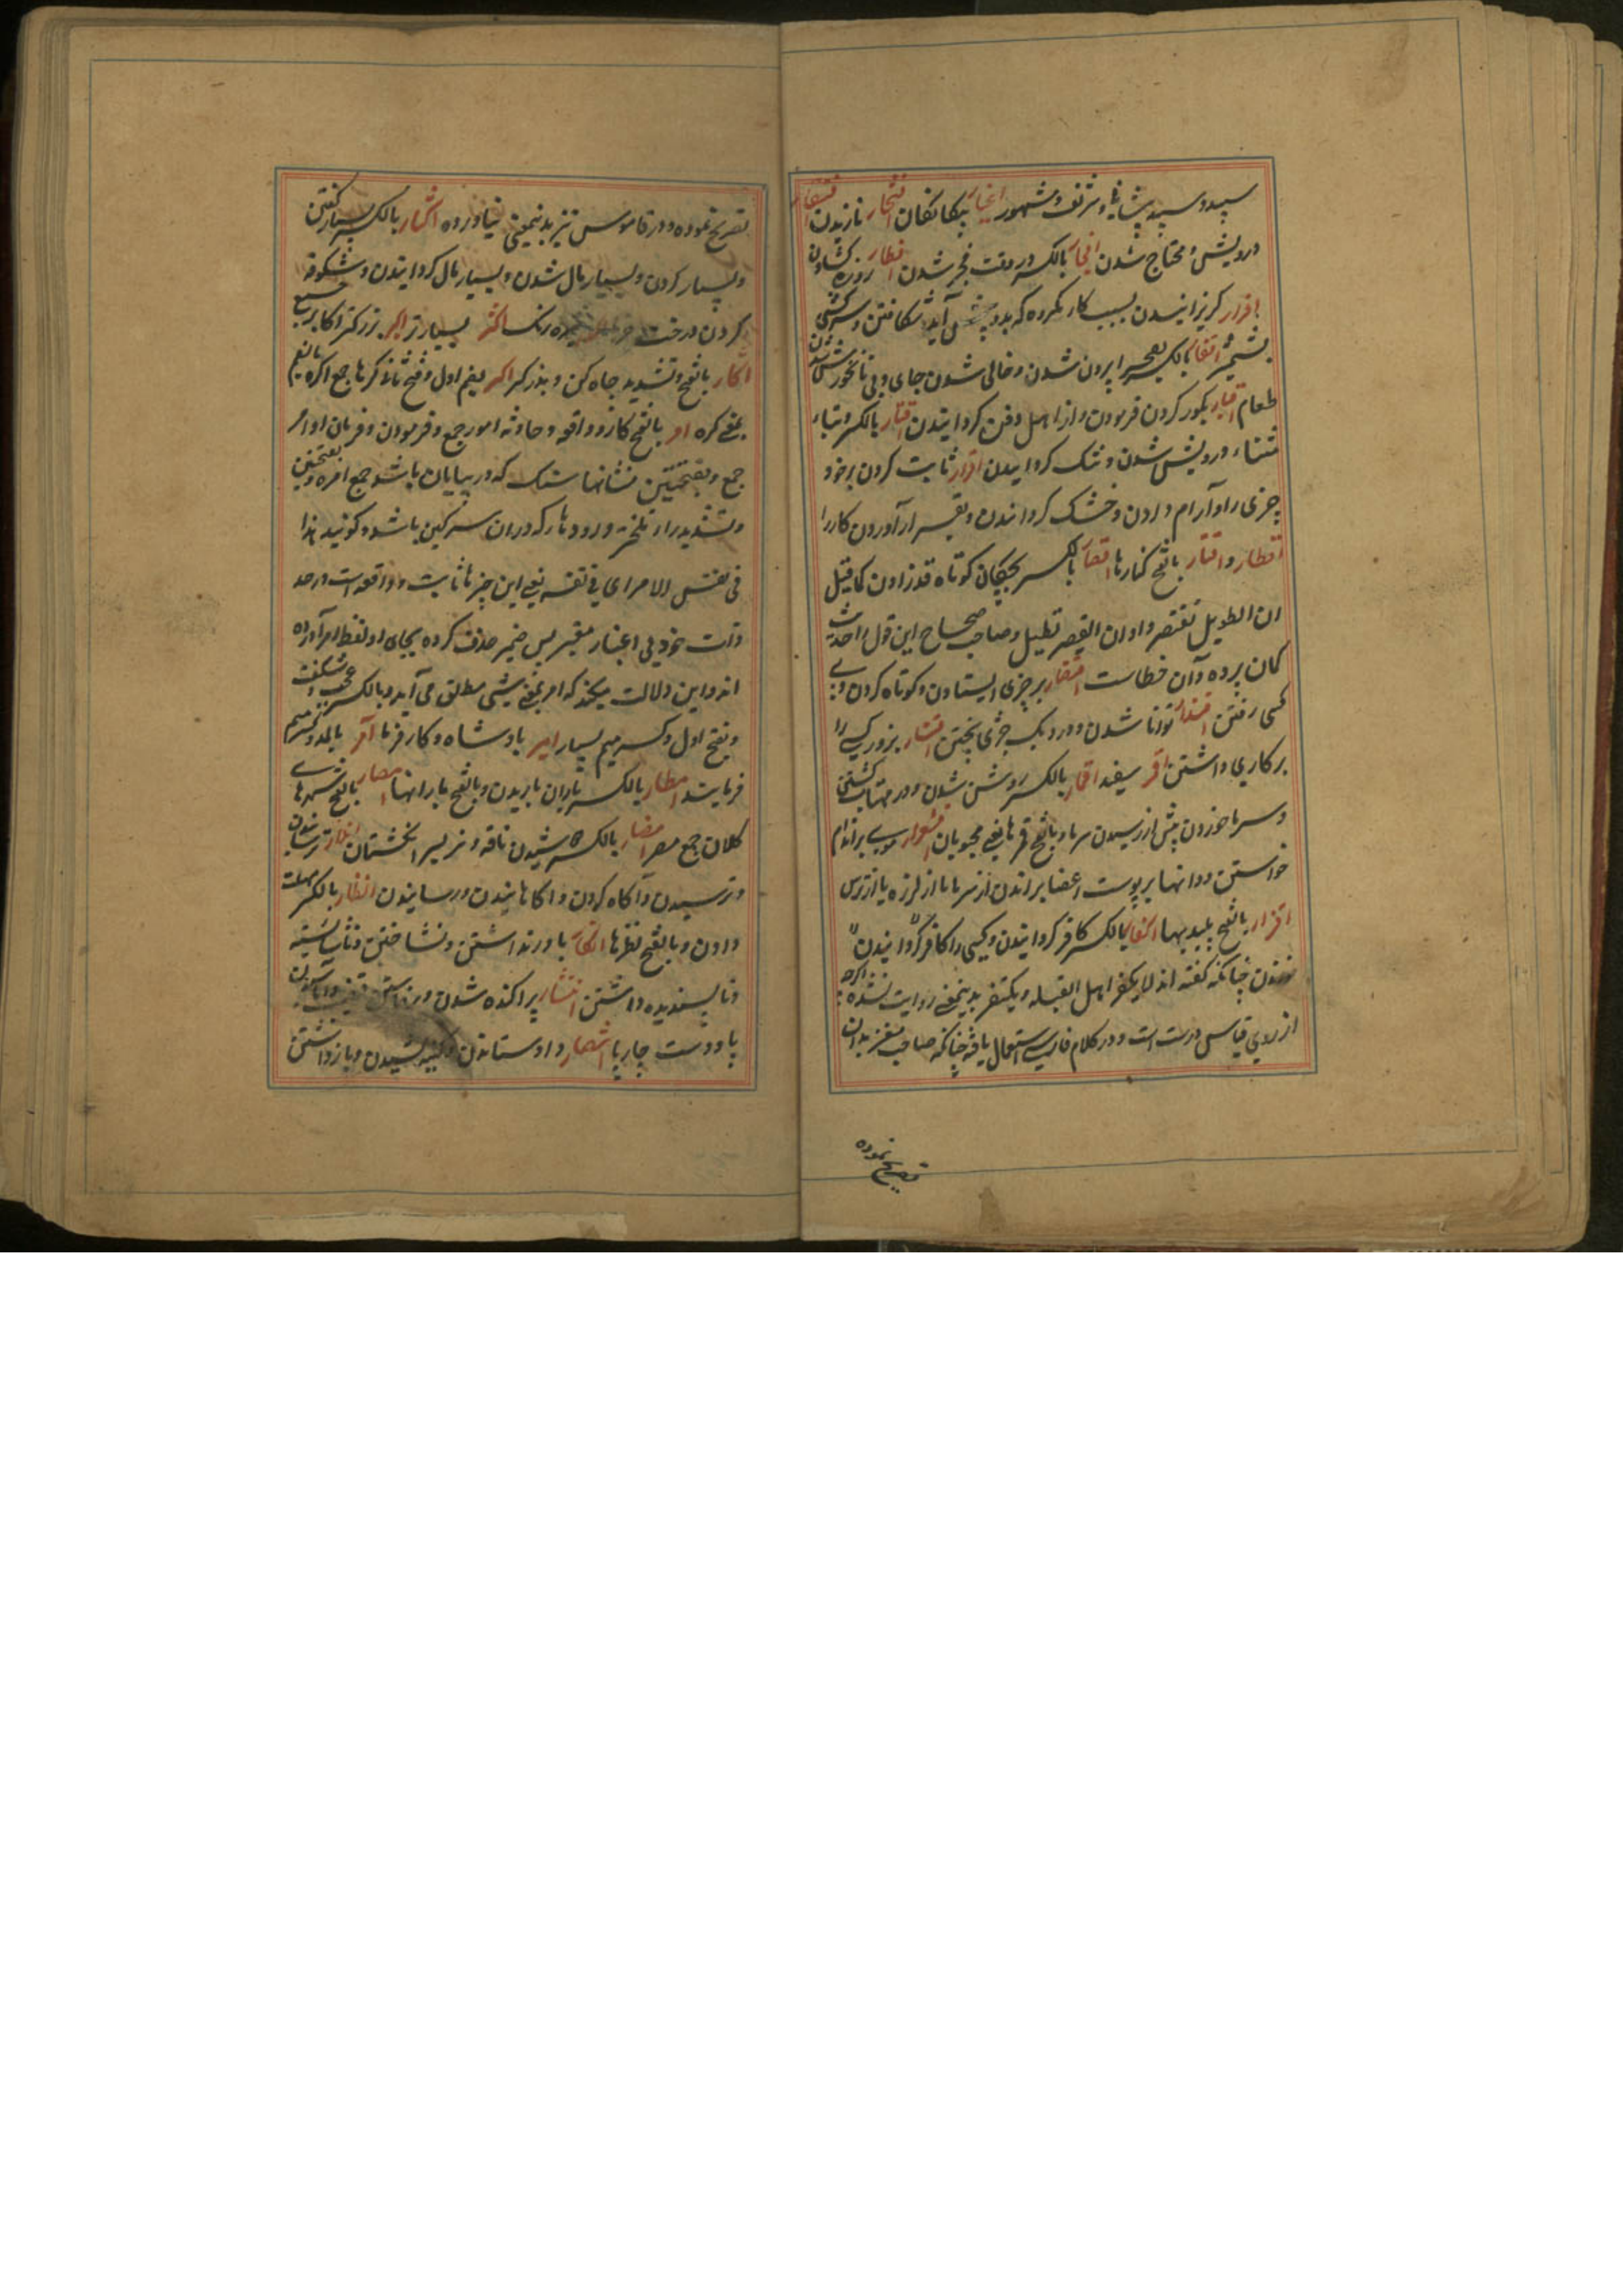 سپید و سپید پیشانیها و شریف و مشهور اغیار بیکانکان افتخار نازیدن افتقار
درویش و محتاج شدن افجار بالکسر در وقت فجر شدن افطار روزه کشادن
افرار کریزانیدن بسبب کار مکروه که بدو پیش آید شکافتن و سرکشی
بالکسر بصحرا بیرون شدن و خالی شدن جای و بی نانخورش شدن
طعام اقبار بکور کردن فرمودن و از اهل دفن کردانیدن اقتار بالکسر و بتاء
مثناه درویش شدن و تنک کردانیدن اقرار ثابت کردن بر خود
چیزی را و آرام دادن و خشک کردانیدن و بقرار آوردن کار را
اقطار و اقتار بالفتح کنارها اقصار بالکسر بچکان کوتاه قد زادن کما قیل
ان الطویل تقصر و او ان القصیر تطیل و صاحب صحاح این قول را حدیث
کمان برده و آن خطاست اقتصار بر چیزی ایستادن و کوتاه کردن و پی
کسی رفتن اقتدار توانا شدن و در دیک چیزی پختن اقتسار بزور کسی را
بر کاری داشتن اقمر سفید اقمار بالکسر روشن شدن و در مهتاب کشتن
و سرما خوردن پیش از رسیدن سرما و بالفتح قمرها یعنی محبوبان اقشعرار موی بر اندام
خواستن و دانها بر پوست اعضا بر آمدن از سرما یا از لرزه یا از ترس
اقذار بالفتح پلیدیها اکفار بالکسر کافر کردانیدن و کسی را کافر کردانیدن
چنانکه کفته اند لا یکفر اهل القبله و یکتفر بدینمعنی روایت نشده اکرچه
از روی قیاس درست است و در کلام فارسی استعمال یافته چنانکه صاحب مغرب بدان
تصریح نموده
تصریح نموده و در قاموس نیز بدینمعنی نیاورده اکثار بالکسر بسیار کفتن
و بسیار کردن و بسیار مال شدن و بسیار مال کردانیدن و شکوفه
کردن درخت اکثر بسیارتر اکبر بزرکتر اکابر جمع
اکار بالفتح و تشدید چاه کن و بذرکر اکر بضم اول و فتح ثانی کرها جمع اکره بالضم
بمعنی کره امر بالفتح کار و واقعه و حادثه امور جمع و فرمودن و فرمان اوامر
جمع و بفتحتین نشانها سنک که در بیابان باشد جمع امره بفتحتین
و تشدید را و تلخ تر و رودها که در ان سرکین باشد و کویند هذا
فی نفس الامر ای فی نفسه یعنی این چیزها ثابت و واقع است در حد
ذات خود بی اعتبار معتبر پس ضمیر حذف کرده بجای او لفظ امر آورده
اند و این دلالت میکند که امر بمعنی شیی مطلق می آید و بالکسر عجب و شکفت
و بفتح اول و کسر میم بسیار امیر بادشاه و کارفرما آمر بالمد و کسر میم
فرماینده امطار بالکسر باران باریدن و بالفتح بارانها امصار بالفتح شهرهای
کلان جمع مصر امصار بالکسر دوشیدن ناقه و نر بسر انکشتان انذار ترسانیدن
و ترسیدن و آکاه کردن و آکاهانیدن و رسانیدن انظار بالکسر مهلت
دادن و بالفتح نظرها انکار باور نداشتن و نشناختن و ناشایسته
و ناپسندیده داشتن انتشار پراکنده شدن
پا و دست چارپا انتصار داد ستاندن و کینه کشیدن و بازداشتن